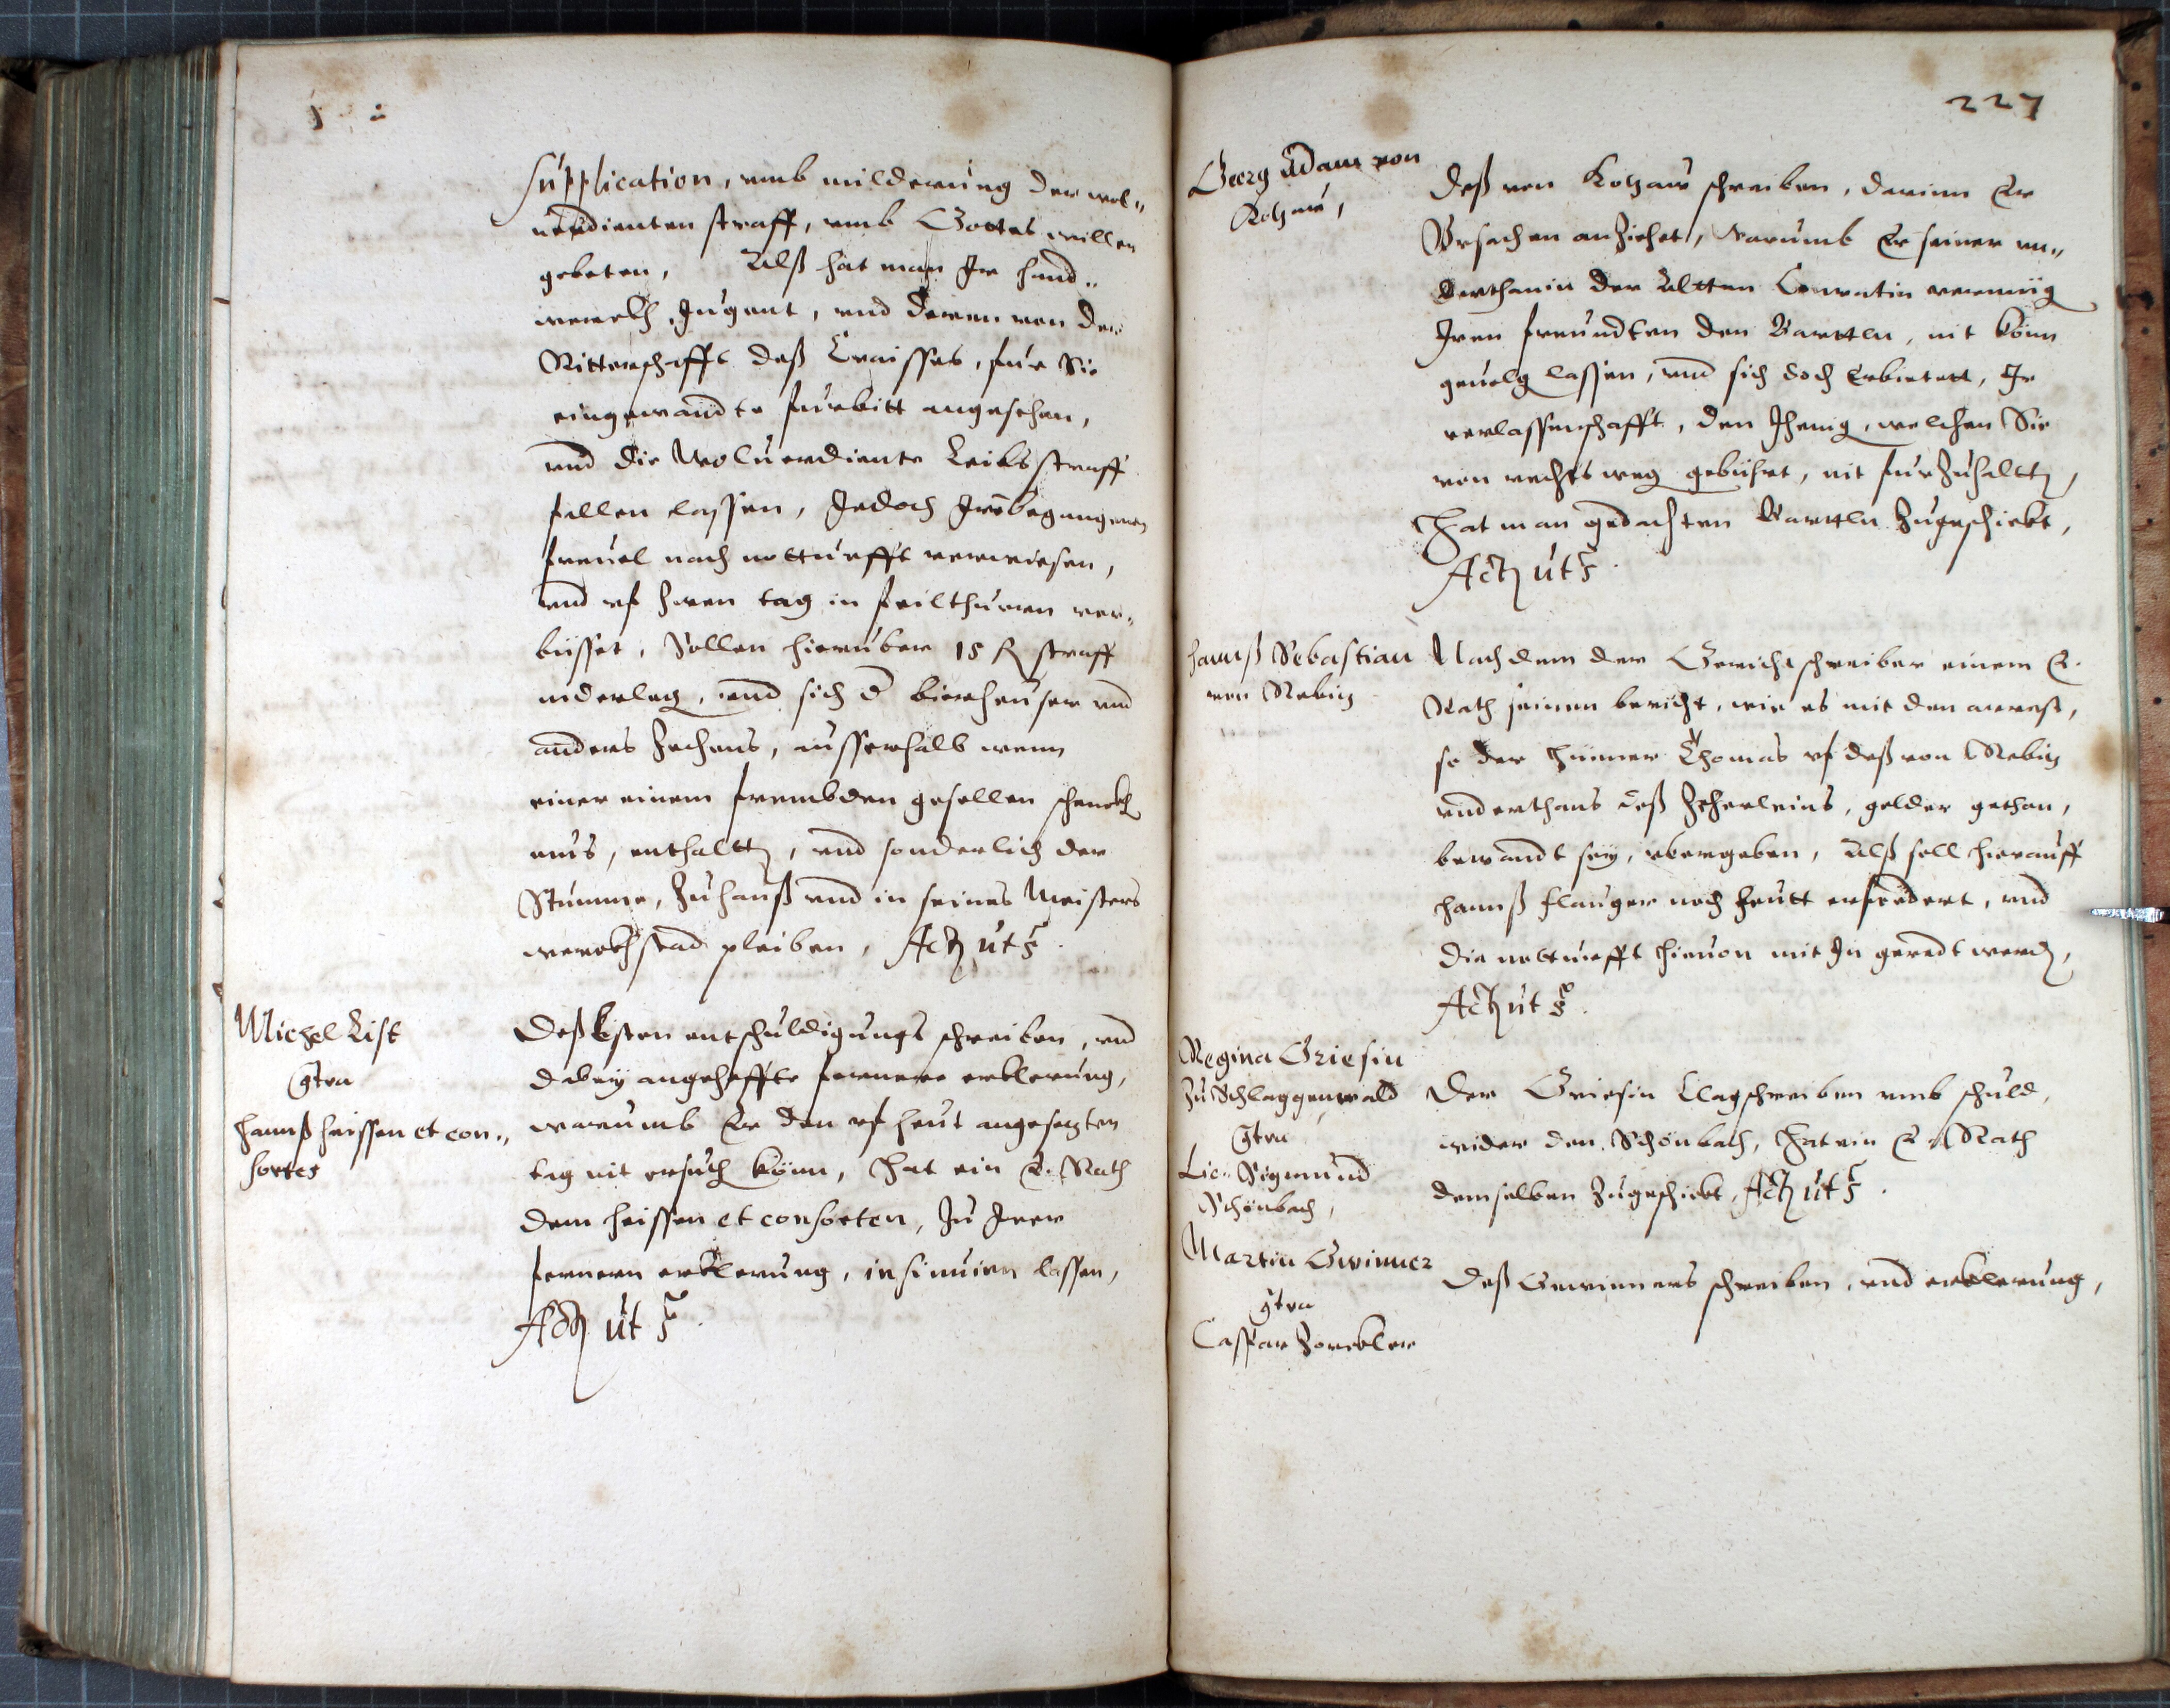 Supplication, vmb milderung der wol„
uerdienten straff, vmb Gottes willen
gebeten, Alß hat man Ir hand„
werckh Jugent, vnd denen von der
Ritterschafft deß Craisses, fur Sie
eingewandte furbitt angesehen,
vnd die Woluerdiente Leibsstraff
fallen lassen, Jedoch Ire begangenen
freuel nach notturfft verwiesen,
vnd vf zwen tag in feilthurm ver„
büsset, Sollen hieruber 15 fl straff
niderlag, vnd sich d bierheuser vnd
anders Zechens, ausserhalb wenn
einer einem frembden gesellen schenckh
mus, enthaltten, vnd sonderlich der
Stumme, Zuhauß vnd in seines Meisters
werckhstad pleiben, Act ut s.
Michel List
gtra
Hannß heissen et con„
sortes
Deß Listen entschuldigungs schreiben, vnd
dabey angeheffte fernere erklerung,
warumb Er den vf heut angesetzten
tag nit ersuch könn, Hat ein E. Rath
dem heissen et consorten, Zu Irer
fernern erklerung, insinuirn lassen,
Act ut s.
227
Georg Adam von
Kotzaw,
Deß von Kotzaw schreiben, darinn Er
Vrsachen anziehet, Warumb Er seiner vn„
derthanin der Altten Conratin vermüg
Iren freundten den Barttln, nit könn
geuolg lassen, vnd sich doch Erbietett, Ir
verlassenschafft, den Jhenig, welchen Sie
von rechts weg gebührt, nit furzuhaltten,
Hat man gedachten Barttln Zugeschickt,
Act ut s.
Hannß Sebastian
von Rebitz
Nachdem der Gerichtschreiber einem E.
Rath seinen bericht, wie es mit den arrest,
so der Thomas vf deß von Rebitz
vnderthans deß gelder gethan,
bewandt sey, vbergeben, Alß soll hierauff
Hannß flauger noch heutt erfordert, vnd
die notturfft hieuon mit In geredt werd,
Act ut s.
Regina Griesin
Zu Schlaggenwald
gtra
Lic. Sigmund
Schönbach,
Der Griesin Clagschreiben vmb schuld,
wider den Schönbach, Hat ein E. Rath
demselben Zugeschickt, Act ut s.
Martin Gwinner
gtra
Caspar Zorckler
Deß Gewinners schreiben, vnd erklerung,